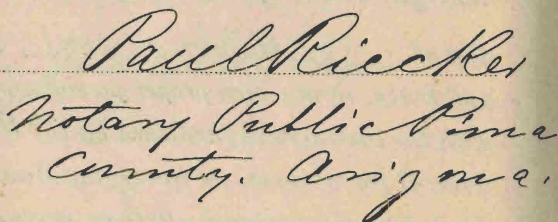 Paul Riecker
Notary Public Pima
County. Arizona.